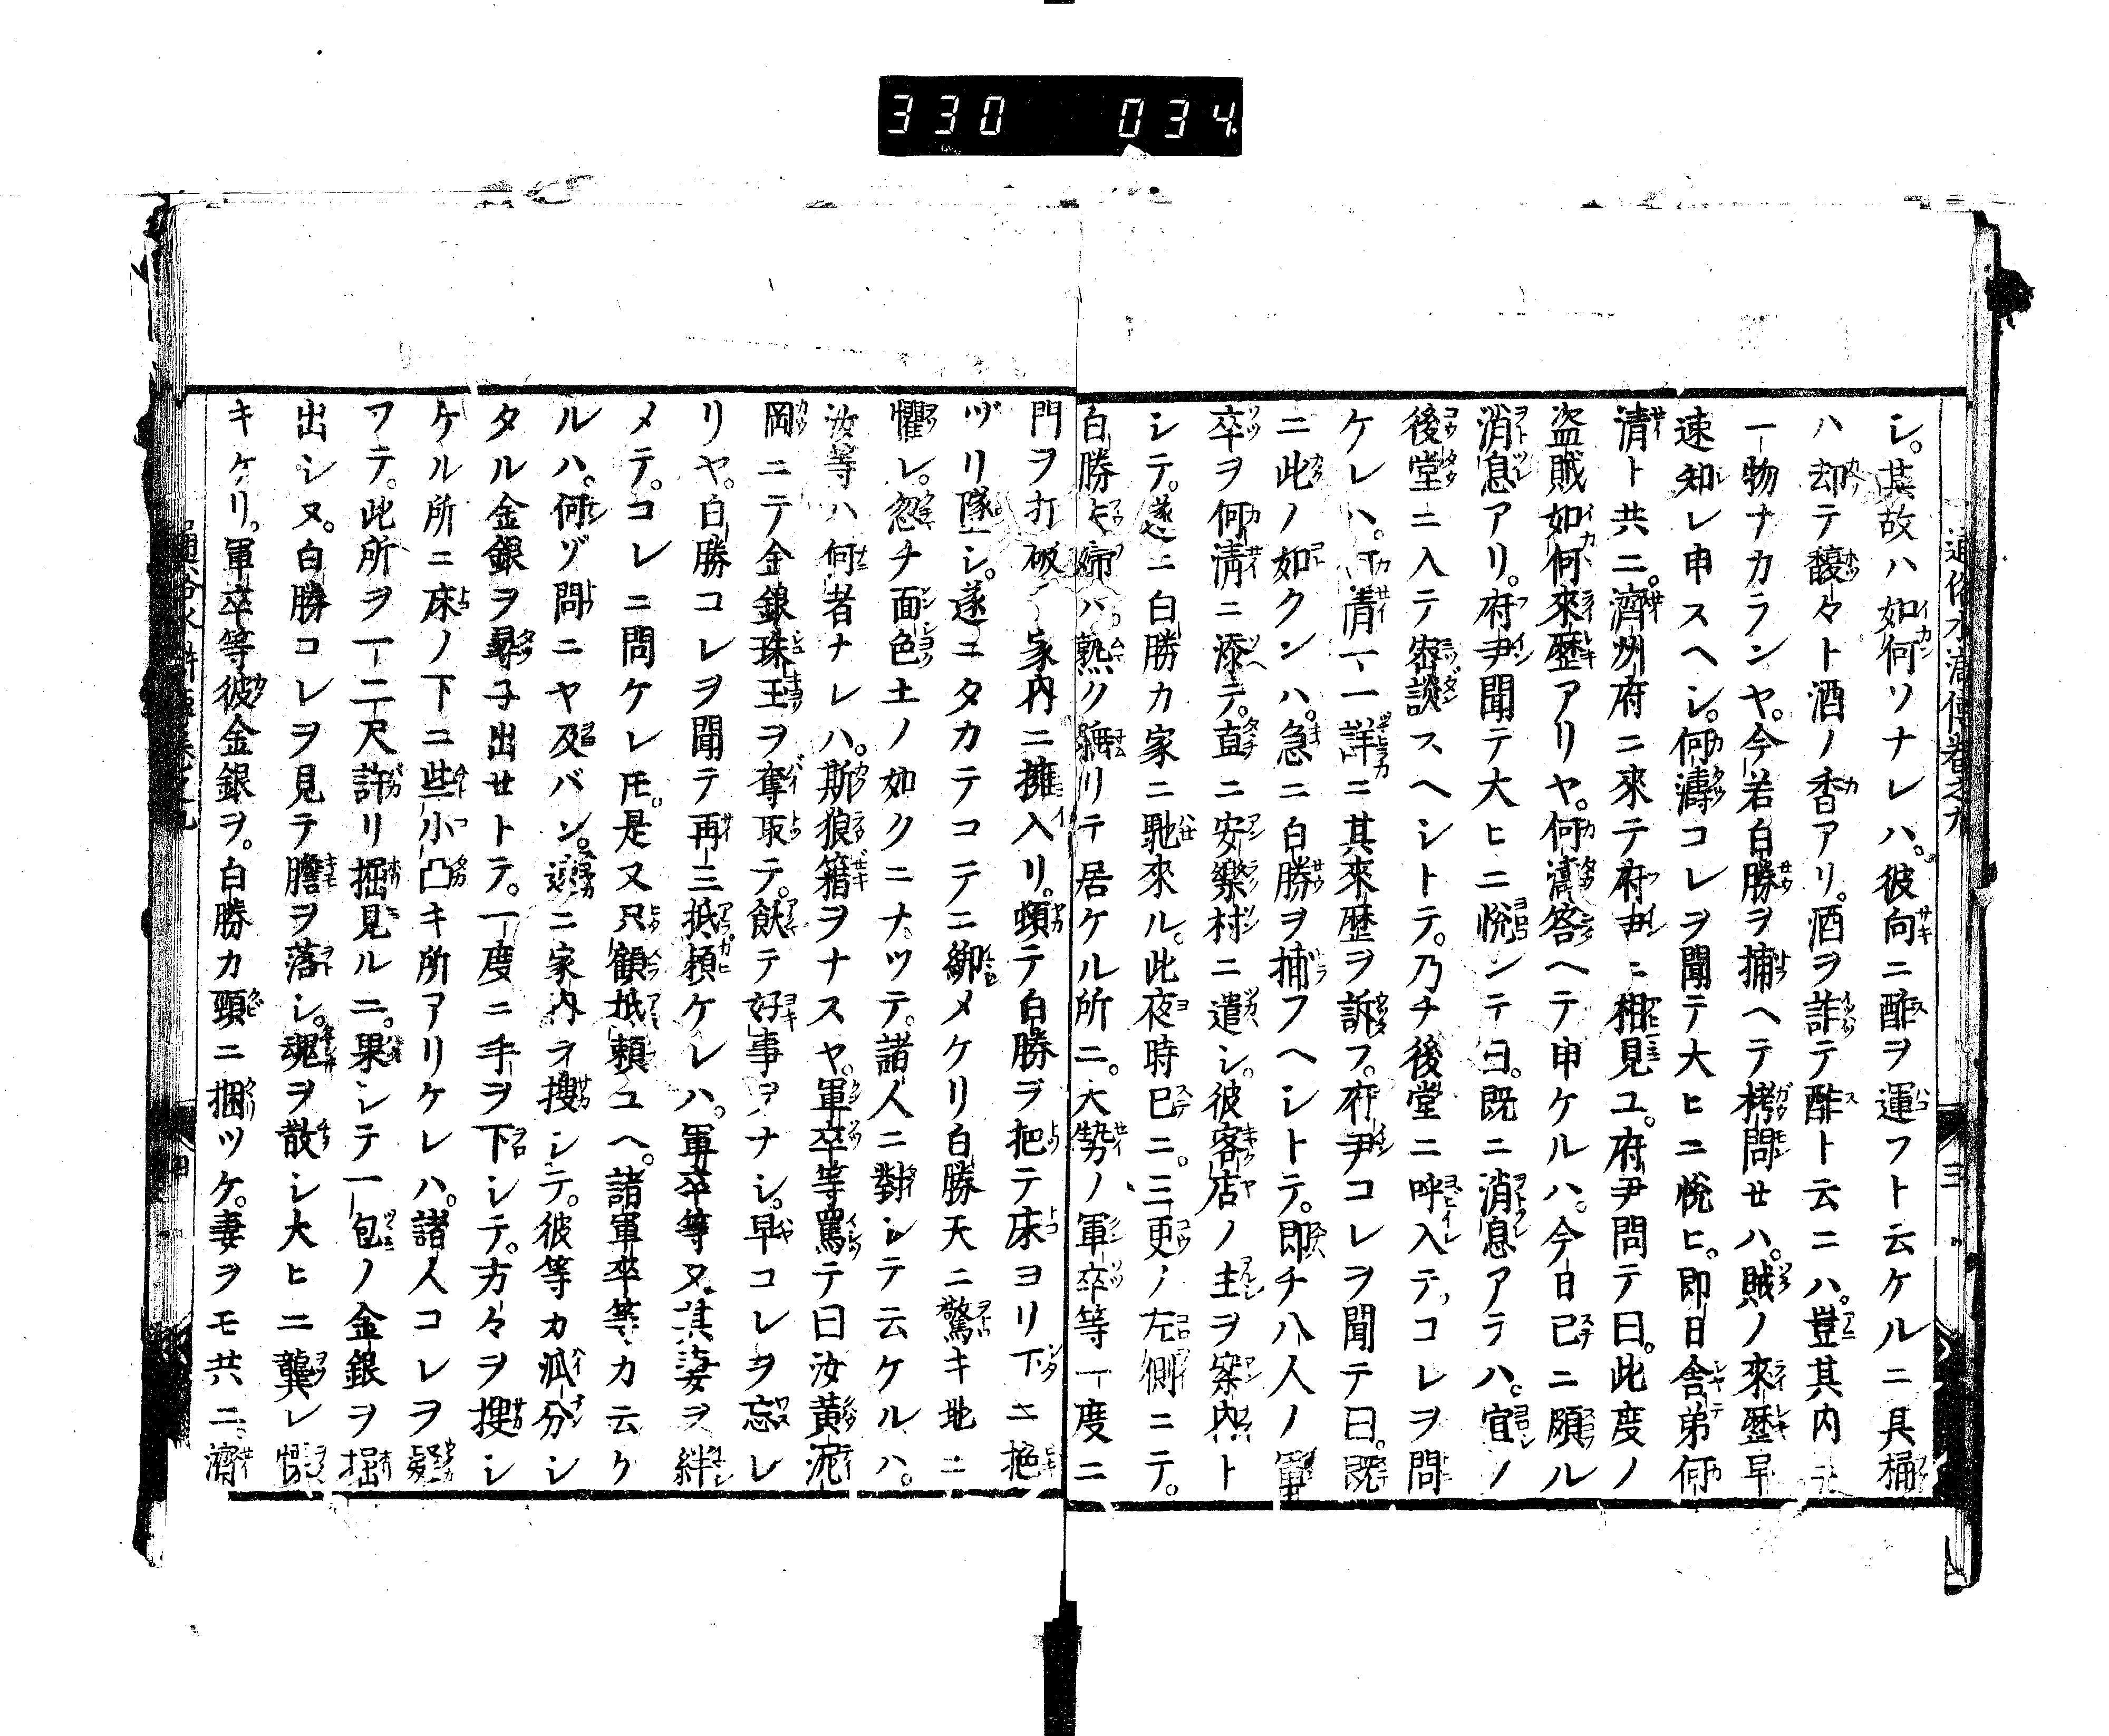 330 034
通俗水滸傳卷之九
シ。其故ハ如何ソナレハ。彼向ニ酢ヲ運フト云ケルニ具桶
ハ却テ馥々ト酒ノ香アリ。酒ヲ詐テ酢ト云ニハ。豈其内ニ
一物ナカランヤ。今若白勝ヲ捕ヘテ栲問セハ。賊ノ來歷早
速知レ申スヘシ。何濤コレヲ聞テ大ヒニ悅ヒ。即日舍弟何
清ト共ニ。濟州府ニ來テ府尹ニ相見ユ。府尹問テ曰。此度ノ
盗賊如何來歷アリヤ。何濤答ヘテ申ケルハ。今日已ニ頗ル
消息アリ。府尹聞テ大ヒニ悅ンテ曰。既ニ消息アラハ。宜ノ
後堂ニ入テ密談スヘシトテ。乃チ後堂ニ呼入テ。コレヲ問
ケレハ。何清一一詳ニ其來歷ヲ訴フ。府尹コレヲ聞テ曰。既
ニ此ノ如クンハ。急ニ白勝ヲ捕フヘシトテ。即チ八人ノ軍
卒ヲ何淸ニ添テ。直ニ安樂村ニ遣シ。彼客店ノ主ヲ案内ト
シテ。遂ニ白勝カ家ニ馳來ル。此夜時已ニ。三更ノ左側ニテ。
白勝夫婦ハ熟ク睡リテ居ケル所ニ。大勢ノ軍卒等一度ニ
門ヲ打破 家内ニ擁入リ。頓テ白勝ヲ把テ床ヨリ下ニ拖
ヅリ墜シ。遂ニタカテコテニ綁メケリ白勝天ニ驚キ地ニ
懼レ。忽チ面色土ノ如クニナツテ。諸人ニ對シテ云ケルハ。
汝等ハ何者ナレハ。斯狼籍ヲナスヤ。軍卒等罵テ曰汝黃泥
岡ニテ金銀珠玉ヲ奪取テ。飮テ好事ヲナシ。早コレヲ忘レ
リヤ。白勝コレヲ聞テ再三抵頼ケレハ。軍卒等又其妻ヲ絆
メテ。コレニ問ケレ𪜈。是又只顧抵頼ユヘ。諸軍卒等カ云ケ
ルハ。何ゾ問ニヤ及バン。速ニ家内ヲ搜シテ。彼等カ瓜分シ
タル金銀ヲ尋子出セトテ。一度ニ手ヲ下シテ。方々ヲ搜シ
ケル所ニ床ノ下ニ些小凸キ所アリケレハ。諸人コレヲ疑
フテ。此所ヲ一二尺許リ掘見ルニ。果シテ一包ノ金銀ヲ掘
出シヌ。白勝コレヲ見テ膽ヲ落シ。魂ヲ散シ大ヒニ龔レ惧
キケリ。軍卒等彼金銀ヲ。白勝カ頸ニ捆ツケ。妻ヲモ共ニ濟